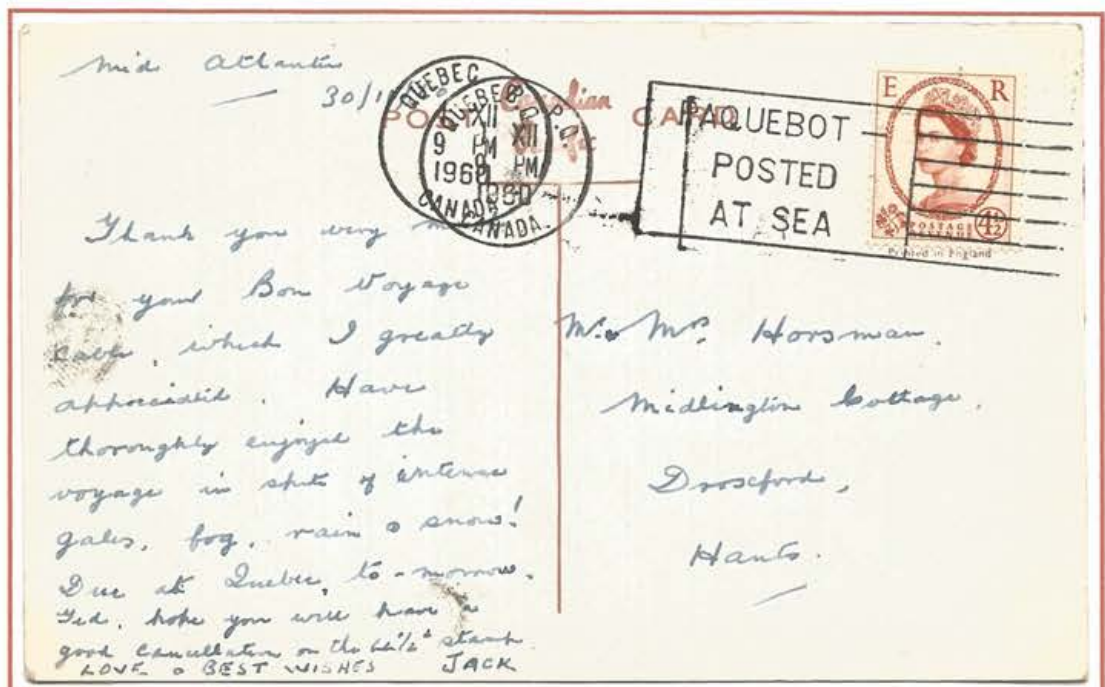 Mid Atlantic
30/11
POST CARD
Canadian
QUEBEC
QUEBEC P.Q.
XII
XII
9 PM
PM
1960
1960
CANADA
CANADA.
PAQUEBOT
POSTED
AT SEA
E R
POSTAGE
4½
Printed in England
Thank you very
for your Bon Voyage
cable, which I greatly
appreciated. Have
thoroughly enjoyed the
voyage in spite of intense
gales, fog, rain & snow!
Due at Quebec, to-morrow.
Ted, hope you will have a
good cancellation on the stamp.
LOVE & BEST WISHES JACK
Mr. Mrs. Horsman.
Midlington Cottage.
Droxford,
Hants.